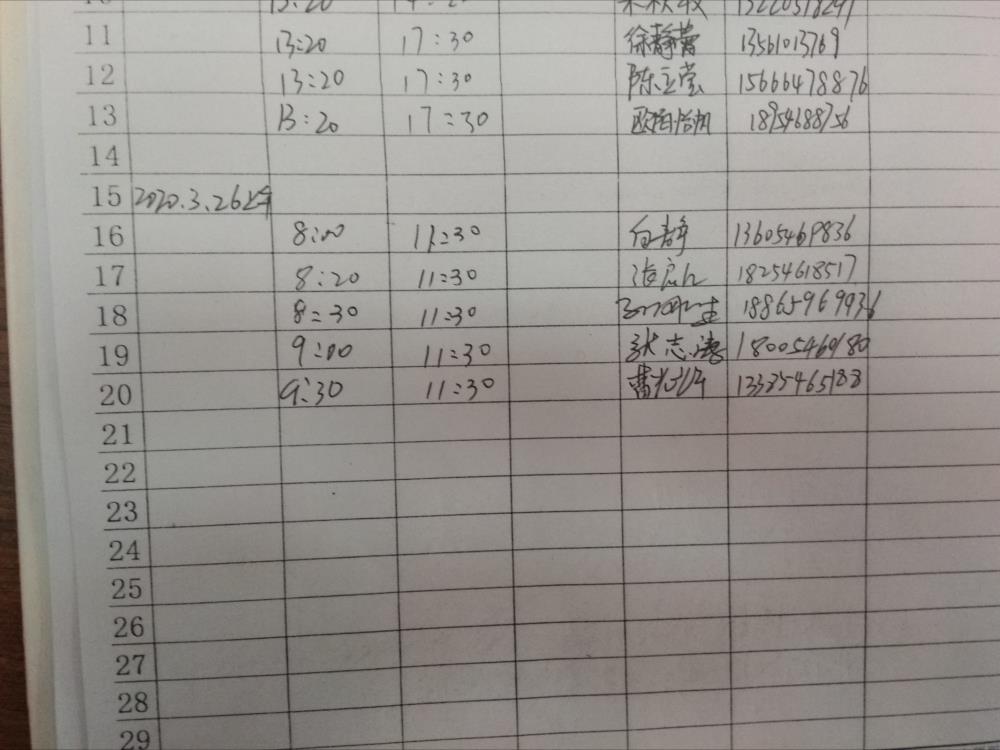 13:20
11 13:20 17:30 徐静蕾 13561013769
12 13:20 17:30 陈立莹 15666478876
13 13:20 17:30 18954688756
14
15 2020.3.26上午
16 8:00 11:30 白静 13605469836
17 8:20 11:30 18254618517
18 8:30 11:30 18865969936
19 9:00 11:30 张志涛 18005460180
20 9:30 11:30 13325465188
21
22
23
24
25
26
27
28
29